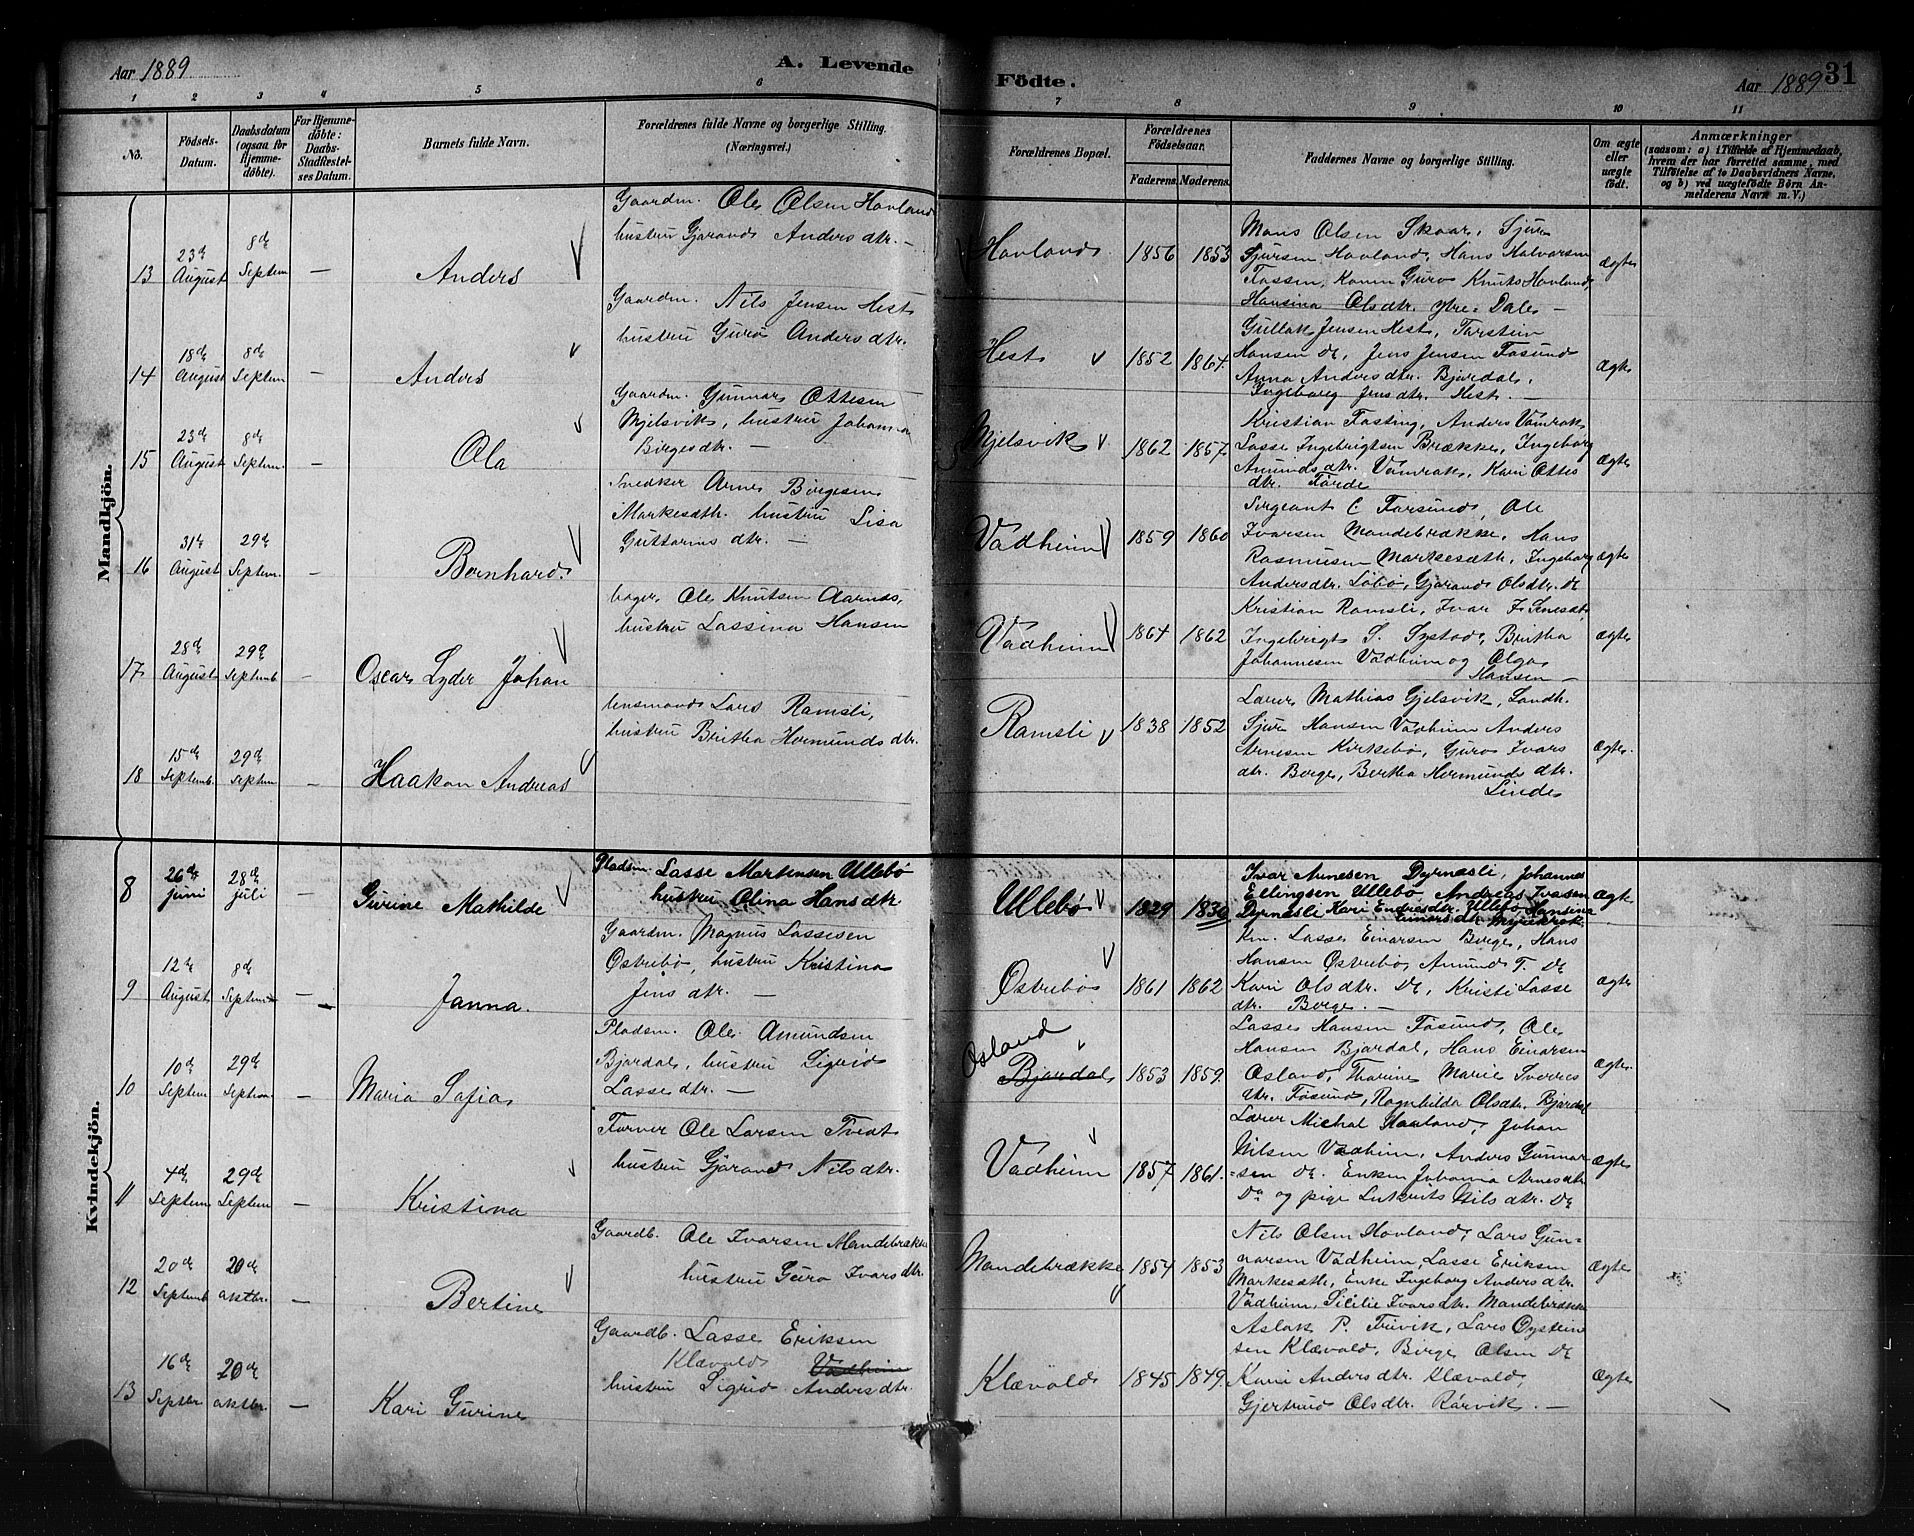 Aar 1889
A. Levende Födte.
Aar 1889
31
1 2 3 4 5 6 7 8 9 10 11
No.
Födsels-Datum.
Daabsdatum (ogsaa for Hjemme-døbte).
For Hjemme-døbte: Daabs-Stadfæstel-ses Datum.
Barnets fulde Navn.
Forældrenes fulde Navne og borgerlige Stilling.
(Næringsvei.)
Forældrenes Bopæl.
Forældrenes Födselsaar.
Faderens. Moderens.
Faddernes Navne og borgerlige Stilling.
Om ægte eller uægte født.
Anmærkninger
(saasom: a) i Tilfælde af Hjemmedaab,
hvem der har forrettet samme, med
Tilføielse af to Daabsvidners Navne,
og b) ved uægtefødte Börn An-
melderens Navn m. V.)
Mandkjön.
13
23de August
8de Septem
—
Anders
Gaardm. Ole Olsen Hovland
hustru Gjørond Anders dtr. —
Hovland
1856 1853
Mons Olsen Skaar, Sjur
Sjursen Hovland, Hans Halvorsen
Fossen, Konen Guro Knuts Hovland,
Hansina Olsdtr. Ytre-Dale —
Ægte
14
18de August
8de Septem
—
Anders
Gaardm. Nils Jensen Hest
hustru Guro Anders dtr.
Hest
1852 1864
Gullak Jensen Hest, Torstein
Hansen do, Jens Jensen Fosund
Anna Anders dtr. Bjordal,
Ingeborg Jens dtr. Hest. —
Ægte
15
23de August
8de Septem.
—
Ola
Gaardm. Gunnar Ottesen
Mjelsvik, hustru Johanna
Børgesdtr. —
Mjelsvik
1862 1857
Kristian Fasting, Anders Vamrak
Lasse Ingebrigtsen Brække, Ingeborg
Amunds dtr. Vamrak, Kari Ottes
dtr. Førde
Ægte
16
31te August
29de Septem.
—
Bernhard
Snedker Arne Børgesen
Markesæth. hustru Lisa
Guttorms dtr. —
Vadheim
1859 1860
Sergeant C Farsund, Ole
Ivarsen Mandebrække, Hans
Rasmusen Markesæth, Ingeborg
Andersdtr.Løbø, Gjørond Olsdtr. do
Ægte
17
28de August
29de Septemb
—
Oscar Lyder Johan
bager, Ole Knutsen Aarnes,
hustru Lassina Hansen
Vadheim
1864 1862
Kristian Ramsli, Ivar
Ingebrigt S. Systad, Britha
Johannesen Vadheim og Olga
Hansen —
Ægte
18
15de Septemb.
29de Septem
—
Haakon Andreas
lensmand Lars Ramsli,
hustru Britha Hermunds dtr.
Ramsli
1838 1852
Lærer Mathias Gjelsvik, Landh.
Sjur Hansen Vadheim Anders
Arnesen Kirkebø, Guro Ivars
dtr. Borge, Bertha Hermunds dtr.
Linde
Ægte.
Kvindekjön.
8
26de juni
28de juli
—
Gurine Mathilde
Pladsm. Lasse Mortensen Ullebø
hustru Olina Hansdtr
Ullebø
1829 1830
Ivar Arnesen Dyrnesli, Johannes
Ellingsen Ullebø Andreas Ivarsen
Dyrnesli Kari Endresdtr. Ullebø, Hansine
Einarsdtr
Ægte
9
12te August
8de Septem
—
Janna.
Gaardm. Magnus Lassesen
Østrebø, hustru Kristina
Jens dtr. —
Østrebø
1861 1862
Km. Lasse Einarsen Borge, Hans
Hansen Østrebø, Amund T. do
Kari Olsdtr. do, Kristi Lasse
dtr. Borge. —
Ægte
10
10de Septem
29de Septem
—
Maria Sofia
Pladsm. Ole Amundsen
Bjordal, hustru Sigrid
Lasse dtr. —
Osland
Bjordal
1853 1859.
Lasse Hansen Fosund, Ole
Hansen Bjordal, Hans Einarsen
Osland, Thorine Marie Sverres
dtr. Fosund, Ragnhilda Olsdtr. Bjordal
Ægte.
11
4de Septem
29de Septem
—
Kristina
Farver Ole Larsen Tvedt
hustru Gjørond Nils dtr.
Vadheim
1857 1861.
Lærer Michal Haaland, Johan
Nilsen Vadheim, Anders Gunnar-
sen do. Enken Johanna Arnes dtr
Do og pige Nils dtr. do
Ægte
12
20de Septemb
20de oktbr.
—
Bertine
Gaardb. Ole Ivarsen Mandebrække
hustru Guro Ivars dtr.
Mandebrække
1854 1853
Nils Olsen Hovland, Lars Gun-
narsen Vadheim, Lasse Eriksen
Markesæth, Enke Ingeborg Anders dtr.
Vadheim, Sicilie Ivars dtr. Mandebrække
Ægte
13
16de Septbr
20de oktbr.
—
Kari Gurine
Gaardb. Lasse Eriksen
Klævold Vadheim
hustru Sigrid Andersdtr.
Klævold
1845 1849.
Aslak P. Trivik, Lars Øystein
sen Klævold, Børge Olsen do
Kari Anders dtr. Klævold,
Gjertrud Olsdtr. Rørvik. —
Ægte